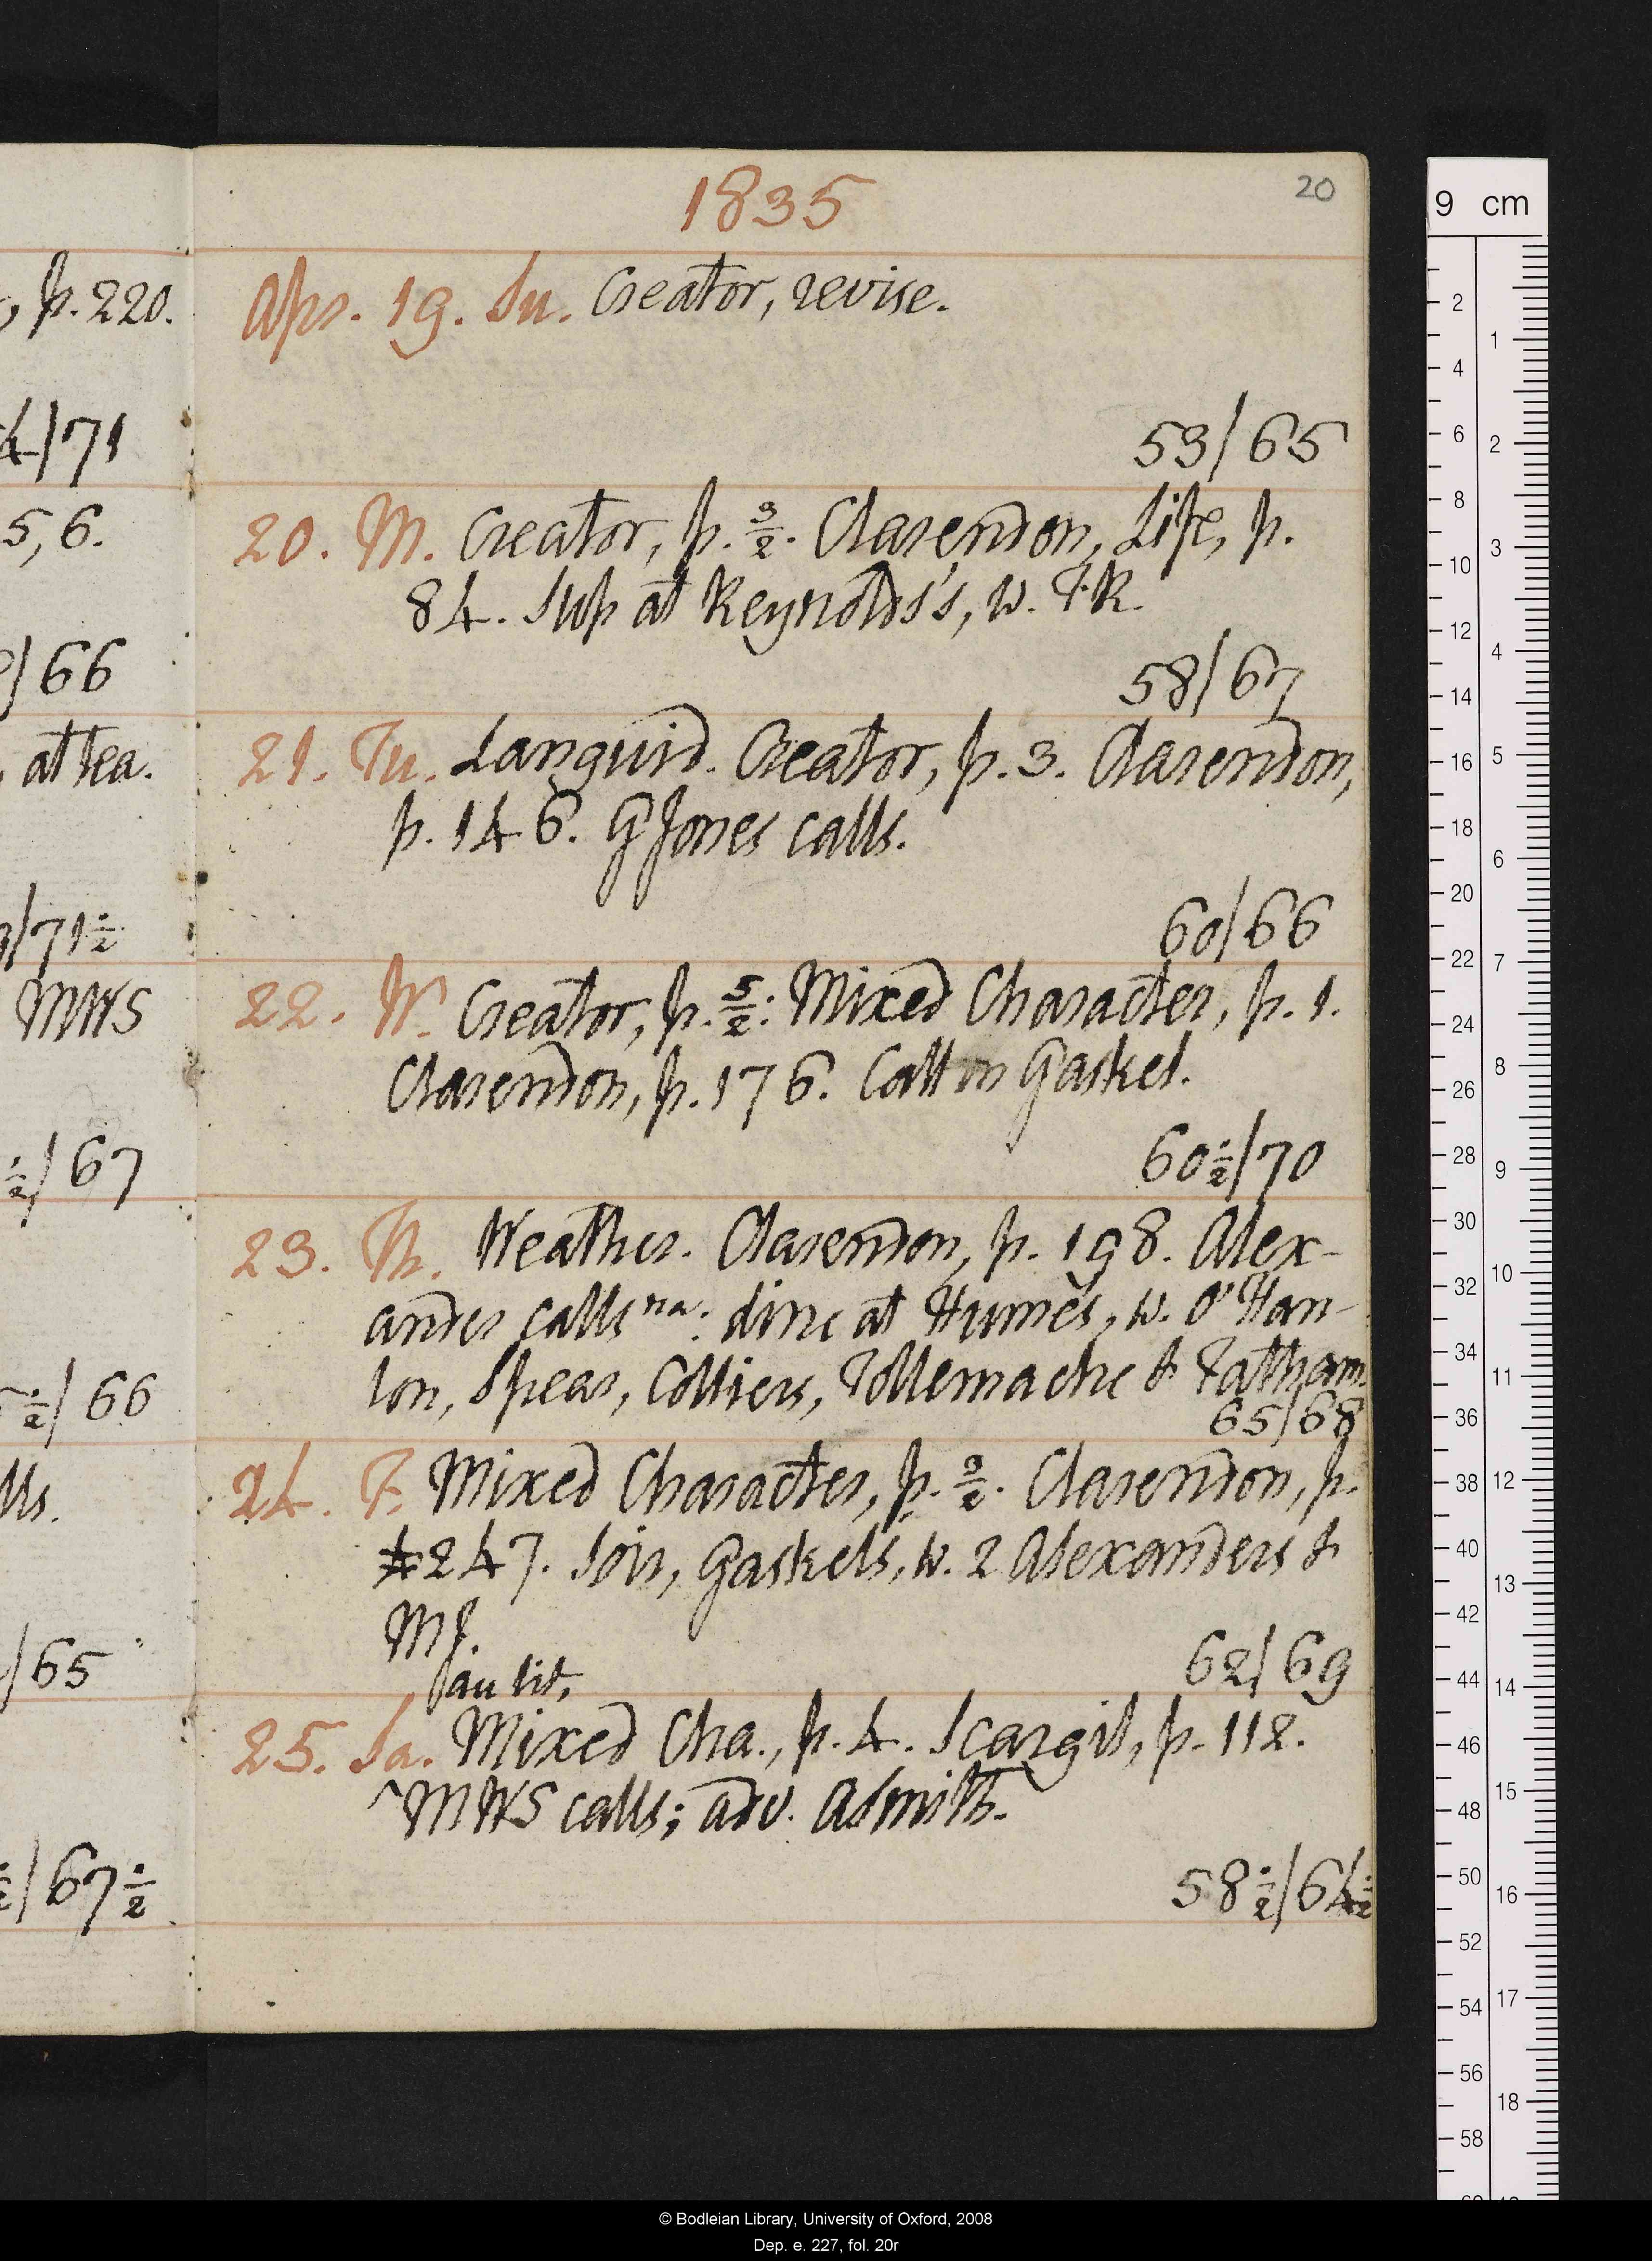 1835
20
Apr. 19. Su. Creator, revise.
53/65
20. M. Creator, p. 3/2. Clarendon, Life, p.
84. Sup at Reynolds's, w. FR.
58/67
21. Tu. Languid. Creator, p. 3. Clarendon,
p. 146. GJones calls.
60/66
22. W. Creator, p. 5/2: Mixed Character, p. 1.
Clarendon, p. 176. Call on Gaskel.
60½/70
23. Th. Weather. Clarendon, p. 198. Alex-
ander calls na: dine at Hume's, w. O'Han-
lon, Spear, Colliers, Tollemache & Fatham.
65/68
24. F. Mixed Character, p. 3/2. Clarendon, p.
247. Soir, Gaskel's, w. 2 Alexanders &
MJ.
62/69
au lit,
25. Sa. Mixed Cha., p. 4. Scargil, p. 112.
^MWS calls; adv. Asmith.
58½/64½
, p. 220.
4/71
5, 6.
/66
at tea.
/71½
MWS
½/67
½/66
lls.
/65
/67½
9 cm
2
4
6
8
10
12
14
16
18
20
22
24
26
28
30
32
34
36
38
40
42
44
46
48
50
52
54
56
58
1
2
3
4
5
6
7
8
9
10
11
12
13
14
15
16
17
18
© Bodleian Library, University of Oxford, 2008
Dep. e. 227, fol. 20r